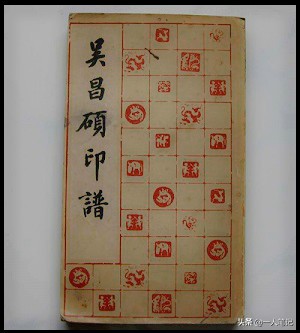 吴昌碩印譜
头条@一人笔记